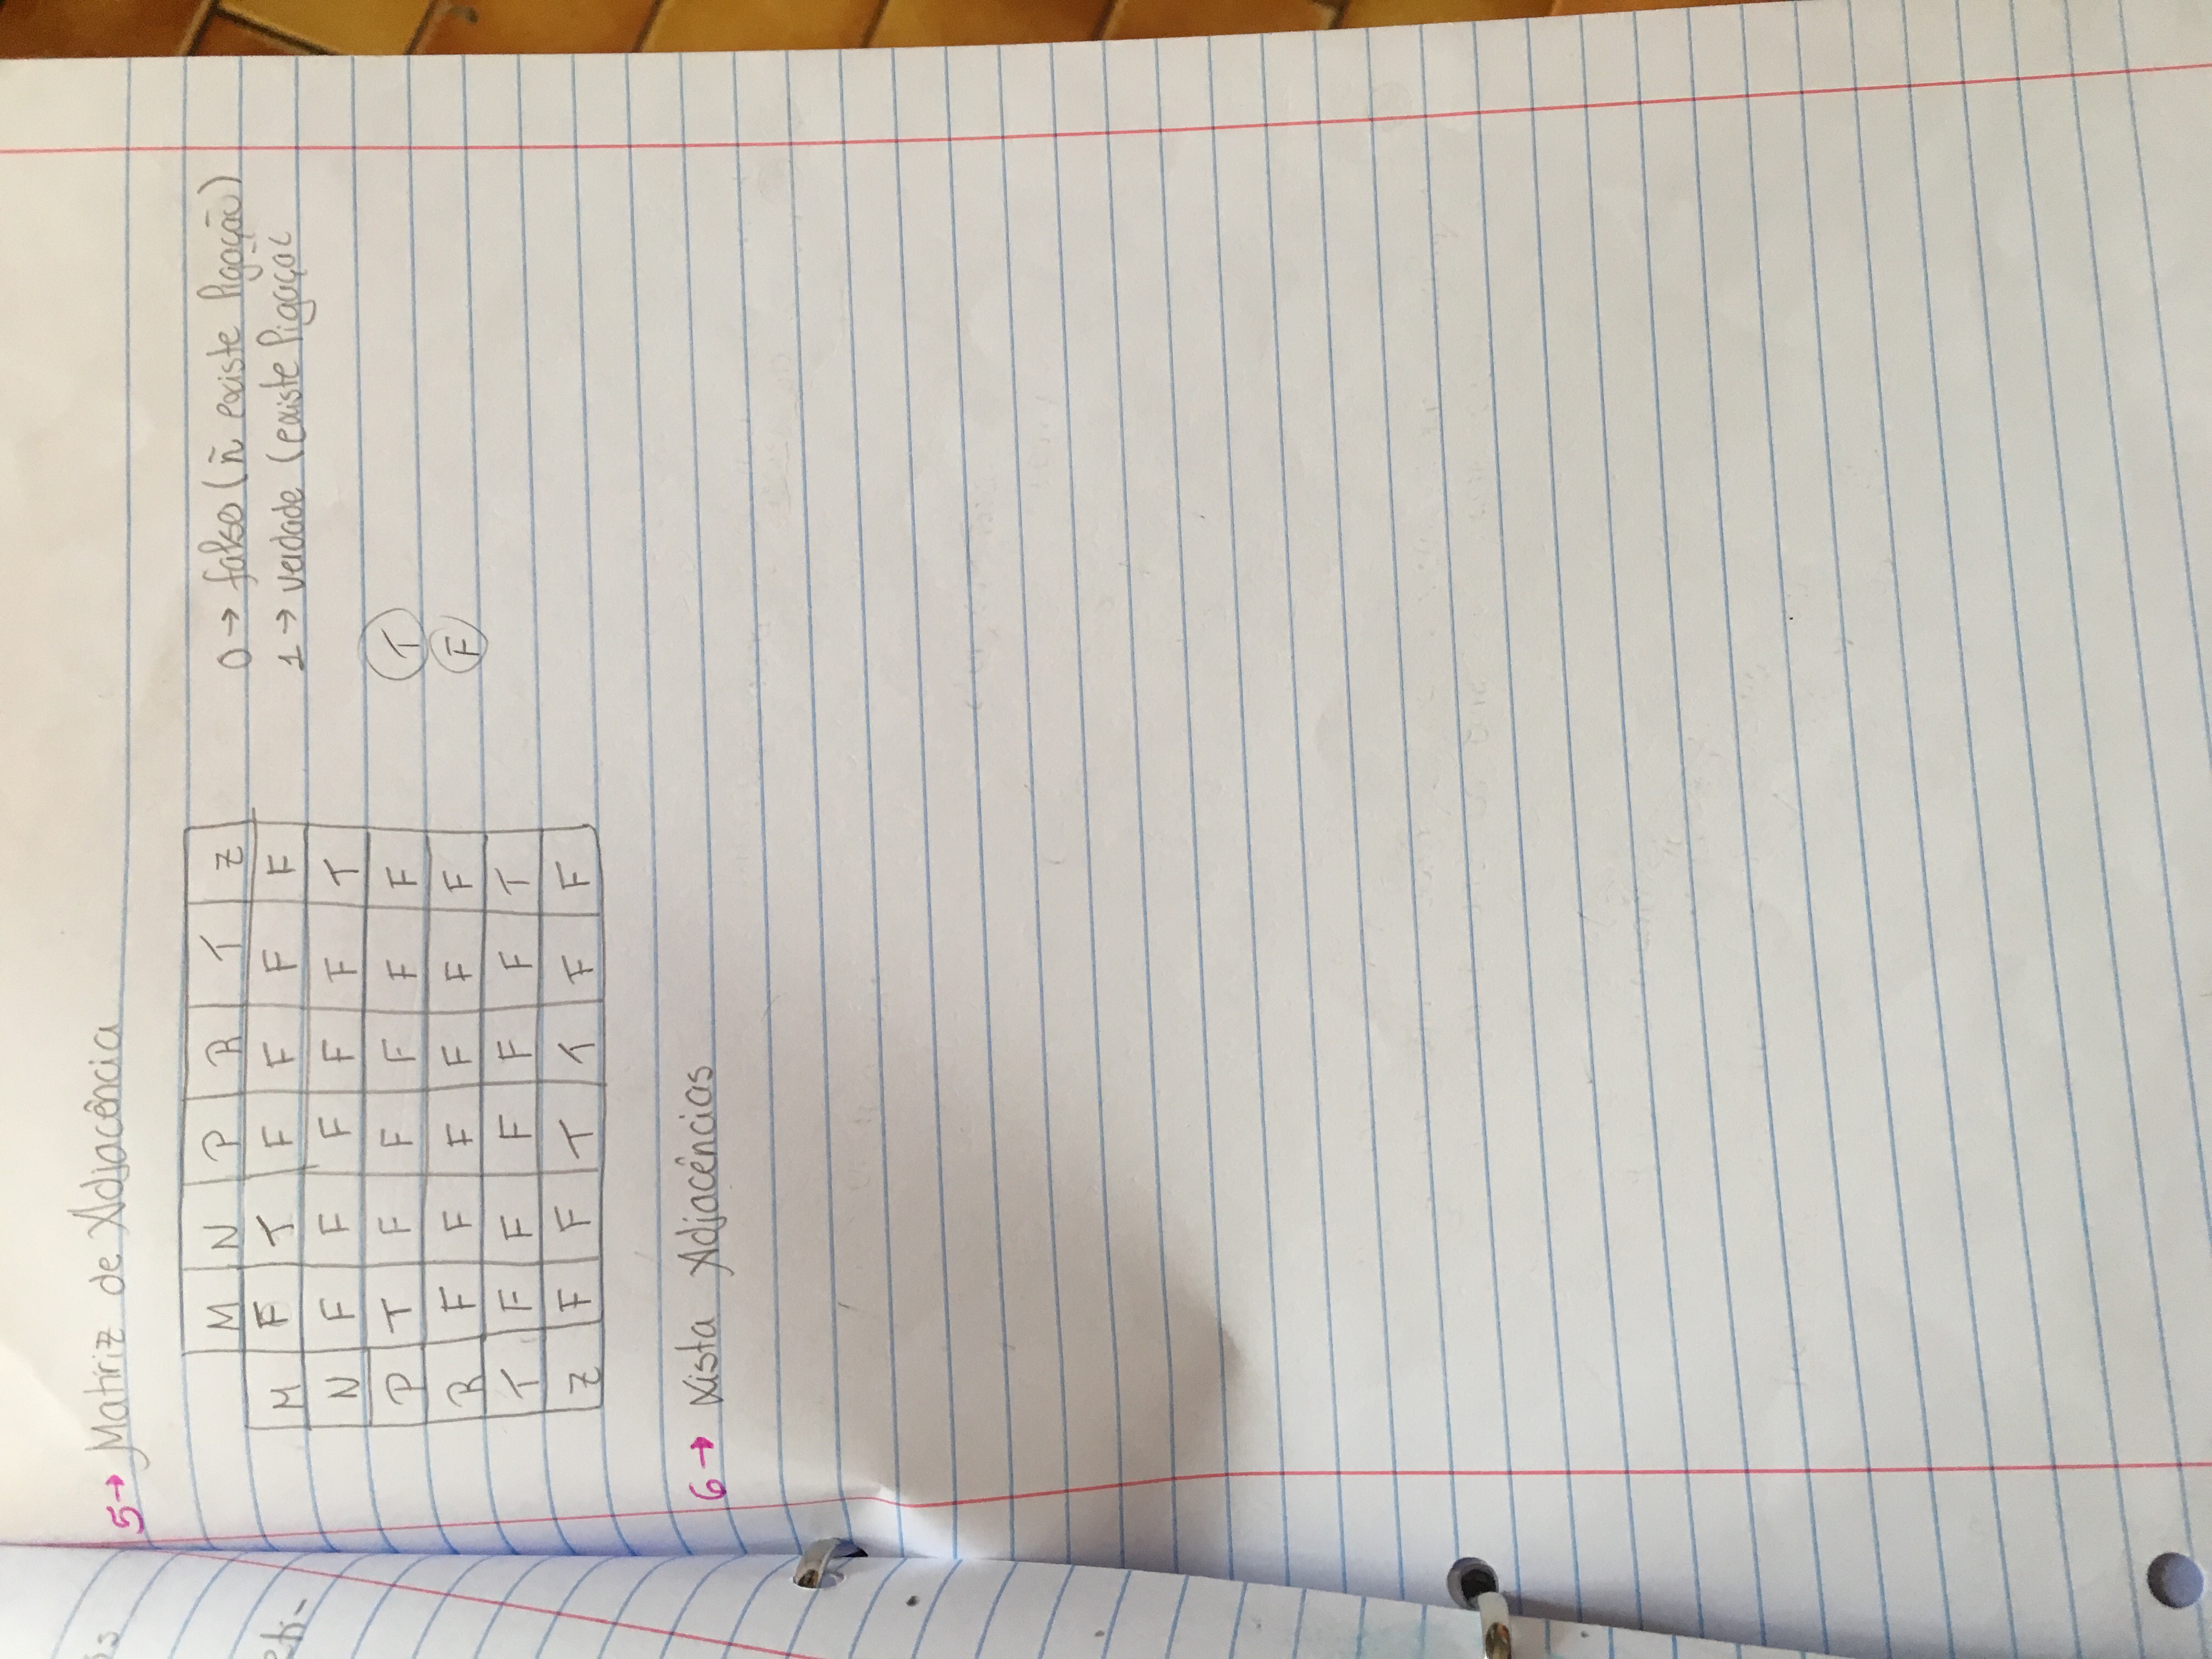 os
eti-
5→ Matiriz de Adjacência
M N P R T Z
M F T F F F F
N F F F F F T
P T F F F F F
R F F F F F F
T F F F F F T
Z F F T T F F
0 → falso (ñ existe ligação)
1 → verdade (existe ligação
T
F
6→ Lista Adjacências